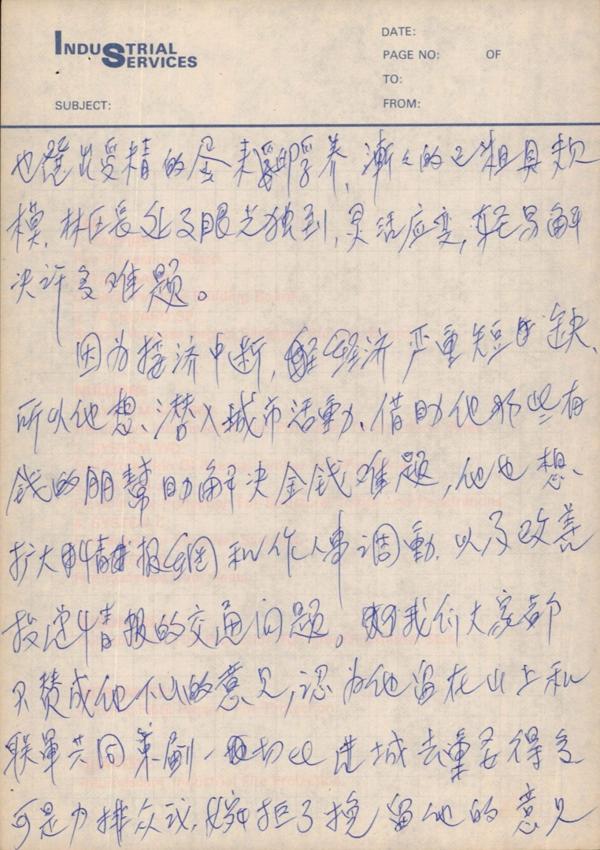 INDUSTRIAL SERVICES
DATE:
PAGE NO: OF
TO:
SUBJECT: FROM:
也从受精的 养,漸々的已粗具規
模,林区長处及眼光独到,灵活应变,轻易解
决许多难题。
因为接济中断,经济严重短缺,
所以他想潜入城市活動、借助他那些有
錢的朋幫助解决金钱难题,他也想
扩大情报網和作人事调動,以及改善
投递情報的交通问题。我们大家都
不赞成他下山的意见,认为他留在山上和
联軍共同策劃一切比进城去重要得多
可是力排众议,婉拒了挽留他的意见